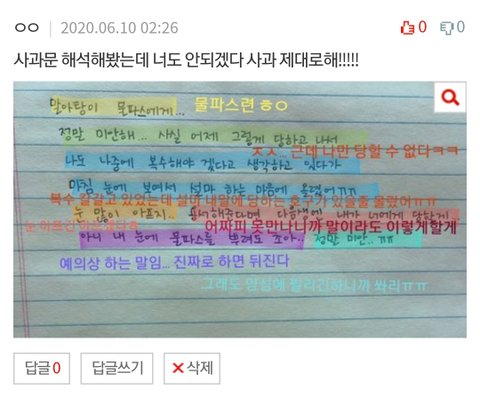 ㅇㅇ 2020.06.10 02:26 0 0
사과문 해석해봤는데 너도 안되겠다 사과 제대로해!!!!!
말아탕이 물파스에게... 물파스련 ㅎㅇ
정말 미안해... 사실 어제 그렇게 당하고 나서
ㅈㅅ... 근데 나만 당할 수 없다ㅋㅋ
나도 나중에 복수해야 겠다고 생각하고 있다가
마침 눈에 보여서 설마 하는 마음에 올렸어ㅠㅠ
복수 할랬고 있었는데 설마 내말에 당하는 호구가 있을줄 몰랐어ㅠㅠ
눈 많이 아프지... 용서해준다면 다음생엔 내가 너에게 당할게
어짜피 못만나니까 말이라도 이렇게할게
아니 내 눈에 물파스를 뿌려도 좋아.. 정말 미안..ㅠㅠ
예의상 하는 말임... 진짜로 하면 뒤진다
그래도 양심에 찔리긴하니까 쏴리ㅠㅠ
답글0 답글쓰기 삭제